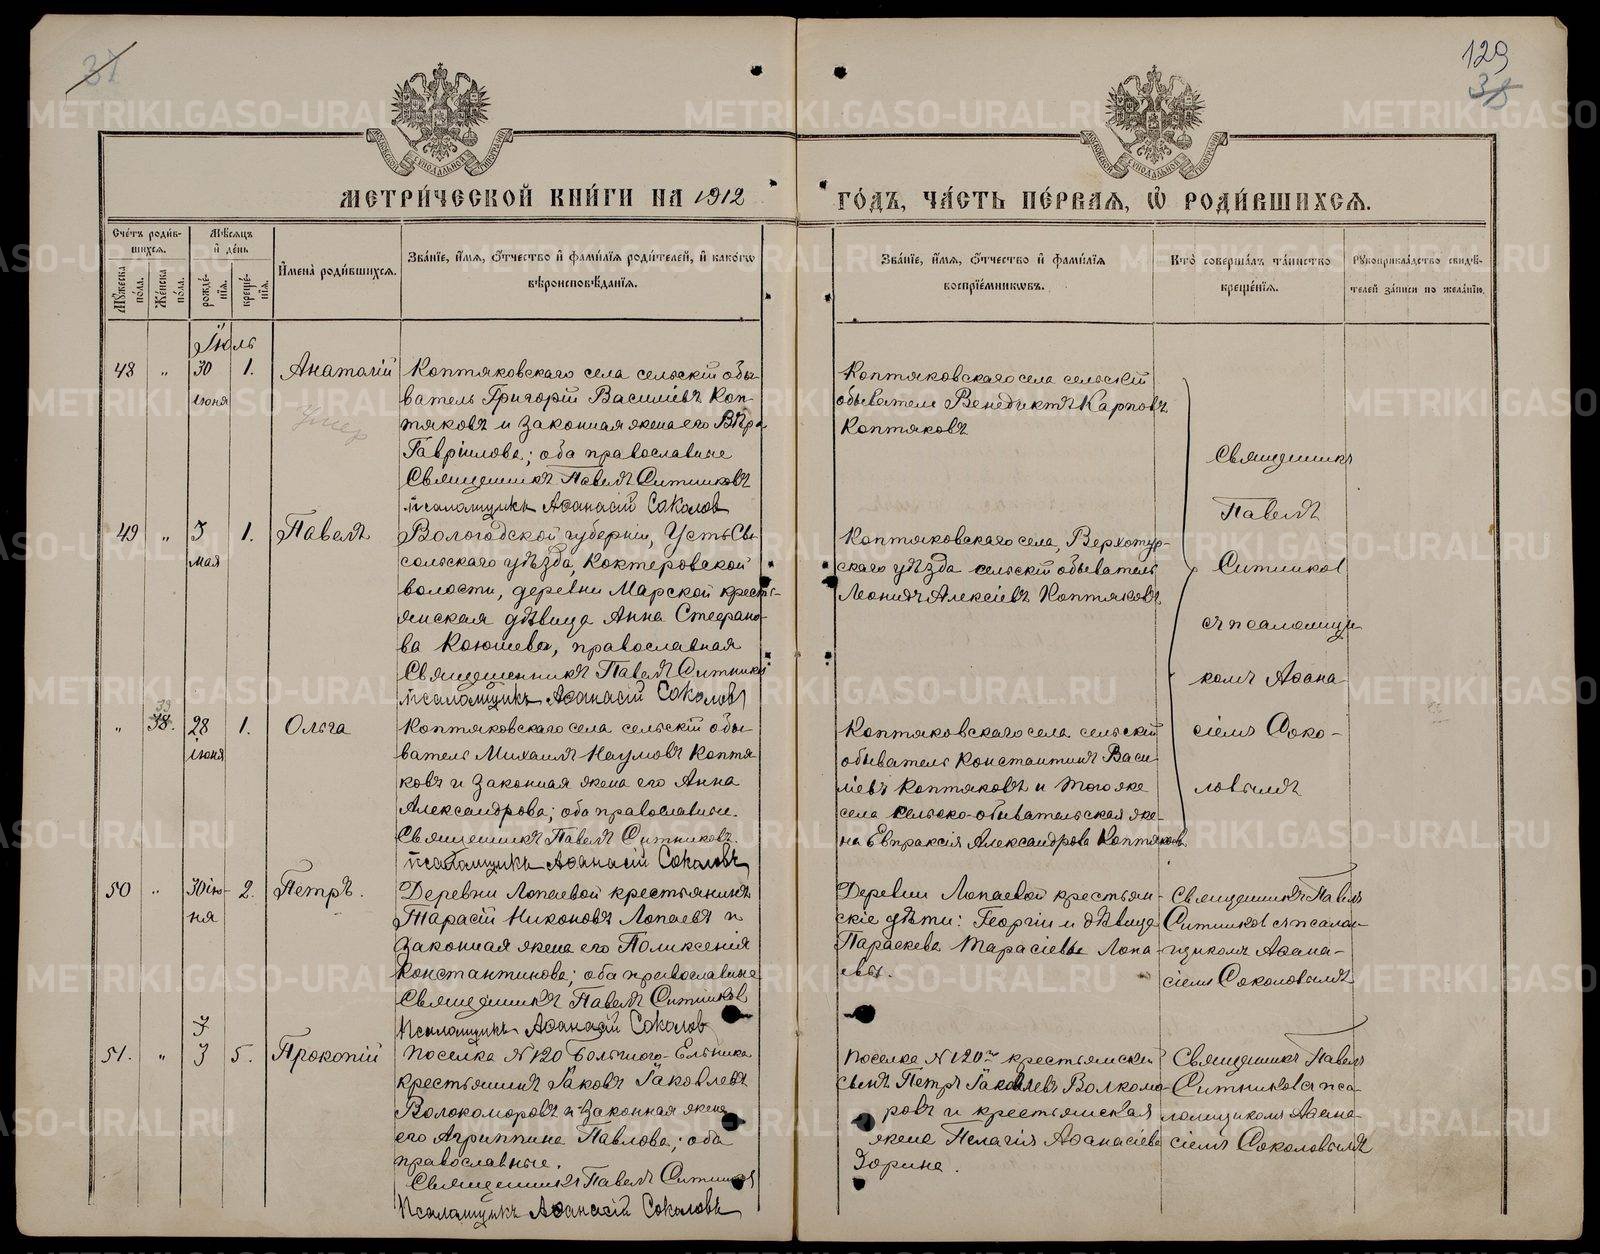 37
129
38
МОСКОВСКОЙ СѴНОДАЛЬНОЙ ТИПОГРАФІИ
МОСКОВСКОЙ СѴНОДАЛЬНОЙ ТИПОГРАФІИ
МЕТРИ́ЧЕСКОЙ КНИ́ГИ НА 1912
ГО́ДЪ, ЧА́СТЬ ПЕ́РВАЯ, Ѽ РОДИ́ВШИХСЯ.
Сче́тъ роди́в-
шихся.
Мꙋ́жеска по́ла.
Же́нска по́ла.
Мѣ́сяцъ
и҆ де́нь
рожде́-
нія.
креще́-
нія.
И҆мена̀ роди́вшихся.
Зва́ніе, и҆́мя, ѻ҆́тчество и҆ фами́лія роди́телей, и҆ како́гѡ
вѣроисповѣ́данія.
Зва́ніе, и҆́мя, ѻ҆́тчество и҆ фами́лія
воспріе́мникѡвъ.
Кто̀ соверша́лъ та́инство
креще́нія.
Рꙋкоприкла́дство свидѣ́-
телей за́писи по жела́нію.
Іюль
48 „ 30 1. Анатолій
іюня
Умер
Коптяковскаго села сельскій обы-
ватель Григорій Василіевъ Коп-
тяковъ и законная жена его Вѣра
Гавріилова; оба православные
Священникъ Павелъ Ситниковъ
псаломщикъ Аѳанасій Соколовъ
Коптяковскаго села сельскій
обыватель Венедиктъ Карповъ
Коптяковъ
Священникъ
Павелъ
Ситников
съ псаломщи
комъ Аѳана
сіемъ Соко-
ловымъ
49 „ 3 1. Павелъ
мая
Вологодской губерніи, Усть-Сы-
сольскаго уѣзда, Коктеровской
волости, деревни Марской кресть-
янская дѣвица Анна Стефано-
ва Коюшева, православная
Священникъ Павелъ Ситников
псаломщикъ Аѳанасій Соколовъ
Коптяковскаго села, Верхотур-
скаго уѣзда сельскій обыватель
Леонидъ Алексіевъ Коптяковъ
„ 38. 28 1. Ольга
39
іюня
Коптяковскаго села сельскій обы-
ватель Михаилъ Наумовъ Коптя
ковъ и законная жена его Анна
Александрова; оба православные.
Священникъ Павелъ Ситниковъ
псаломщикъ Аѳанасій Соколовъ
Коптяковскаго села сельскій
обыватель Константинъ Васи
ліевъ Коптяковъ и того же
села сельско-обывательская же-
на Евпраксія Александрова Коптякова.
50 „ 30 ію- 2. Петръ.
ня
Деревни Лопаевой крестьянинъ
Тарасій Никоновъ Лопаевъ и
законная жена его Поликсенія
Константинова; оба православные
Священникъ Павелъ Ситников
Псаломщикъ Аѳанасій Соколов
Деревни Лопаевой крестьян-
скіе дѣти: Георгій и дѣвица
Параскева Тарасіевы Лопа-
евы.
Священникъ Павелъ
Ситников съ псалом-
щикомъ Аѳана-
сіемъ Соколовымъ
51. „ 3 5. Прокопій
Поселка №120 Большого-Ельника
крестьянинъ Іаковъ Іаковлевъ
Волокоморовъ и законная жена
его Агриппина Павлова; оба
православные.
Священникъ Павелъ Ситников
Псаломщикъ Аѳанасій Соколовъ
Поселка №120го крестьянскій
сынъ Петръ Іаковлевъ Волкомо-
ровъ и крестьянская
жена Пелагія Аѳанасіева
Зорина.
Священникъ Павелъ
Ситников съ пса-
ломщикомъ Аѳана
сіемъ Соколовымъ
METRIKI.GASO-URAL.RU